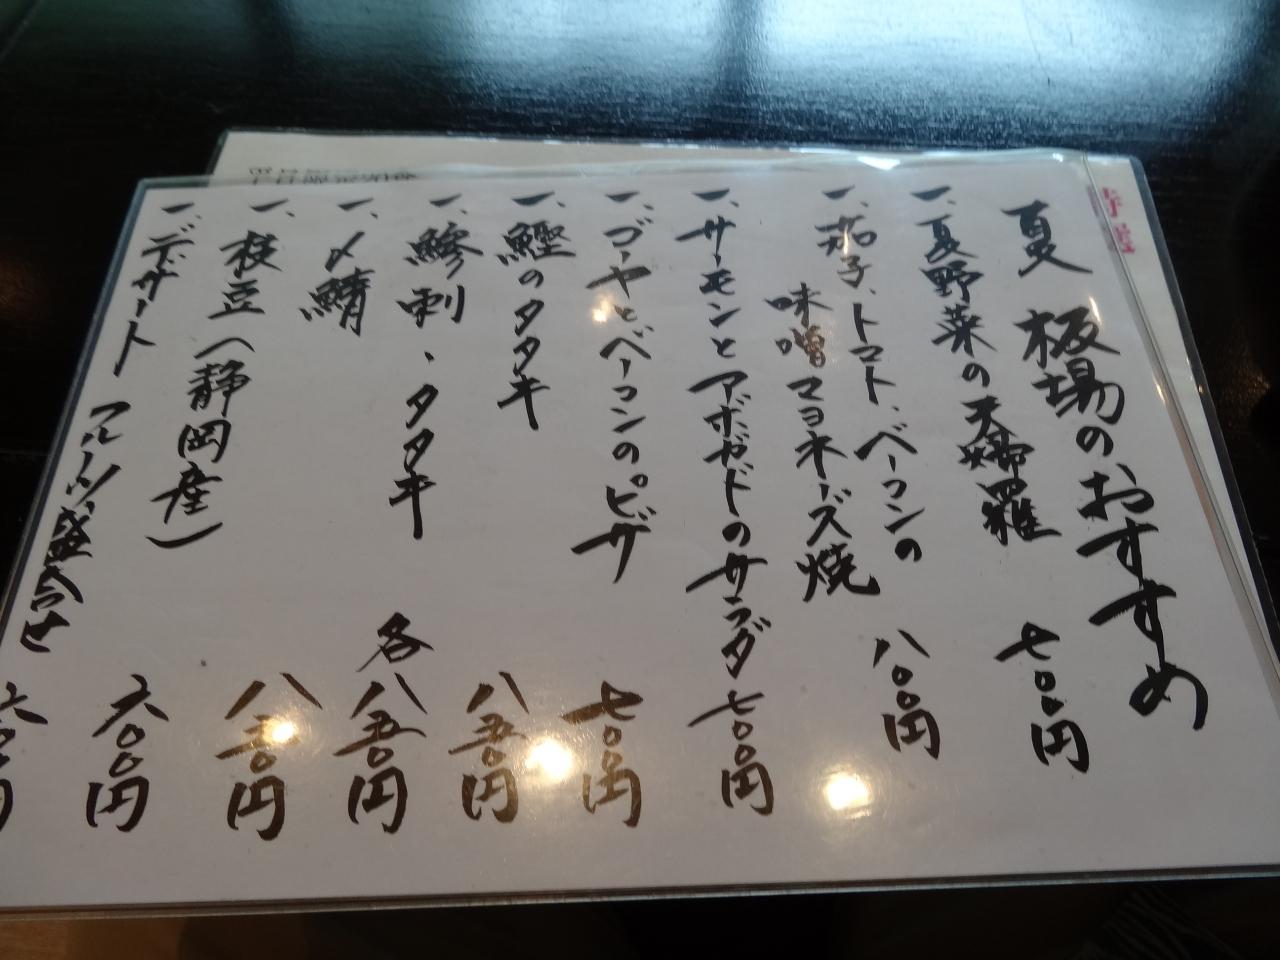 夏 板場のおすすめ
一、夏野菜の天婦羅 七〇〇円
一、茄子、トマト、ベーコンの
味噌マヨネーズ焼 八〇〇円
一、サーモンとアボガドのサラダ 七〇〇円
一、ゴーヤとベーコンのピザ 七〇〇円
一、鰹のタタキ 八五〇円
一、鯵刺、タタキ 各八五〇円
一、〆鯖 八五〇円
一、枝豆(静岡産) 六〇〇円
一、デザート フルーツ盛合せ 六〇〇円